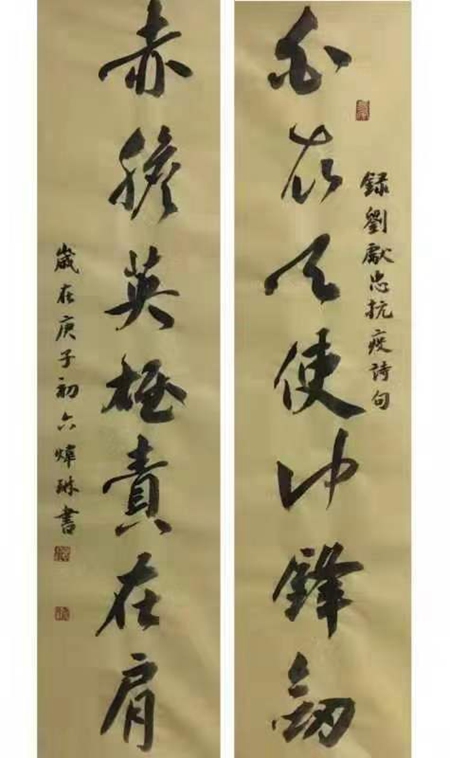 白衣天使冲锋剑
録劉獻忠抗疫詩句
赤膽英雄責在肩
歲在庚子初六煒琳書